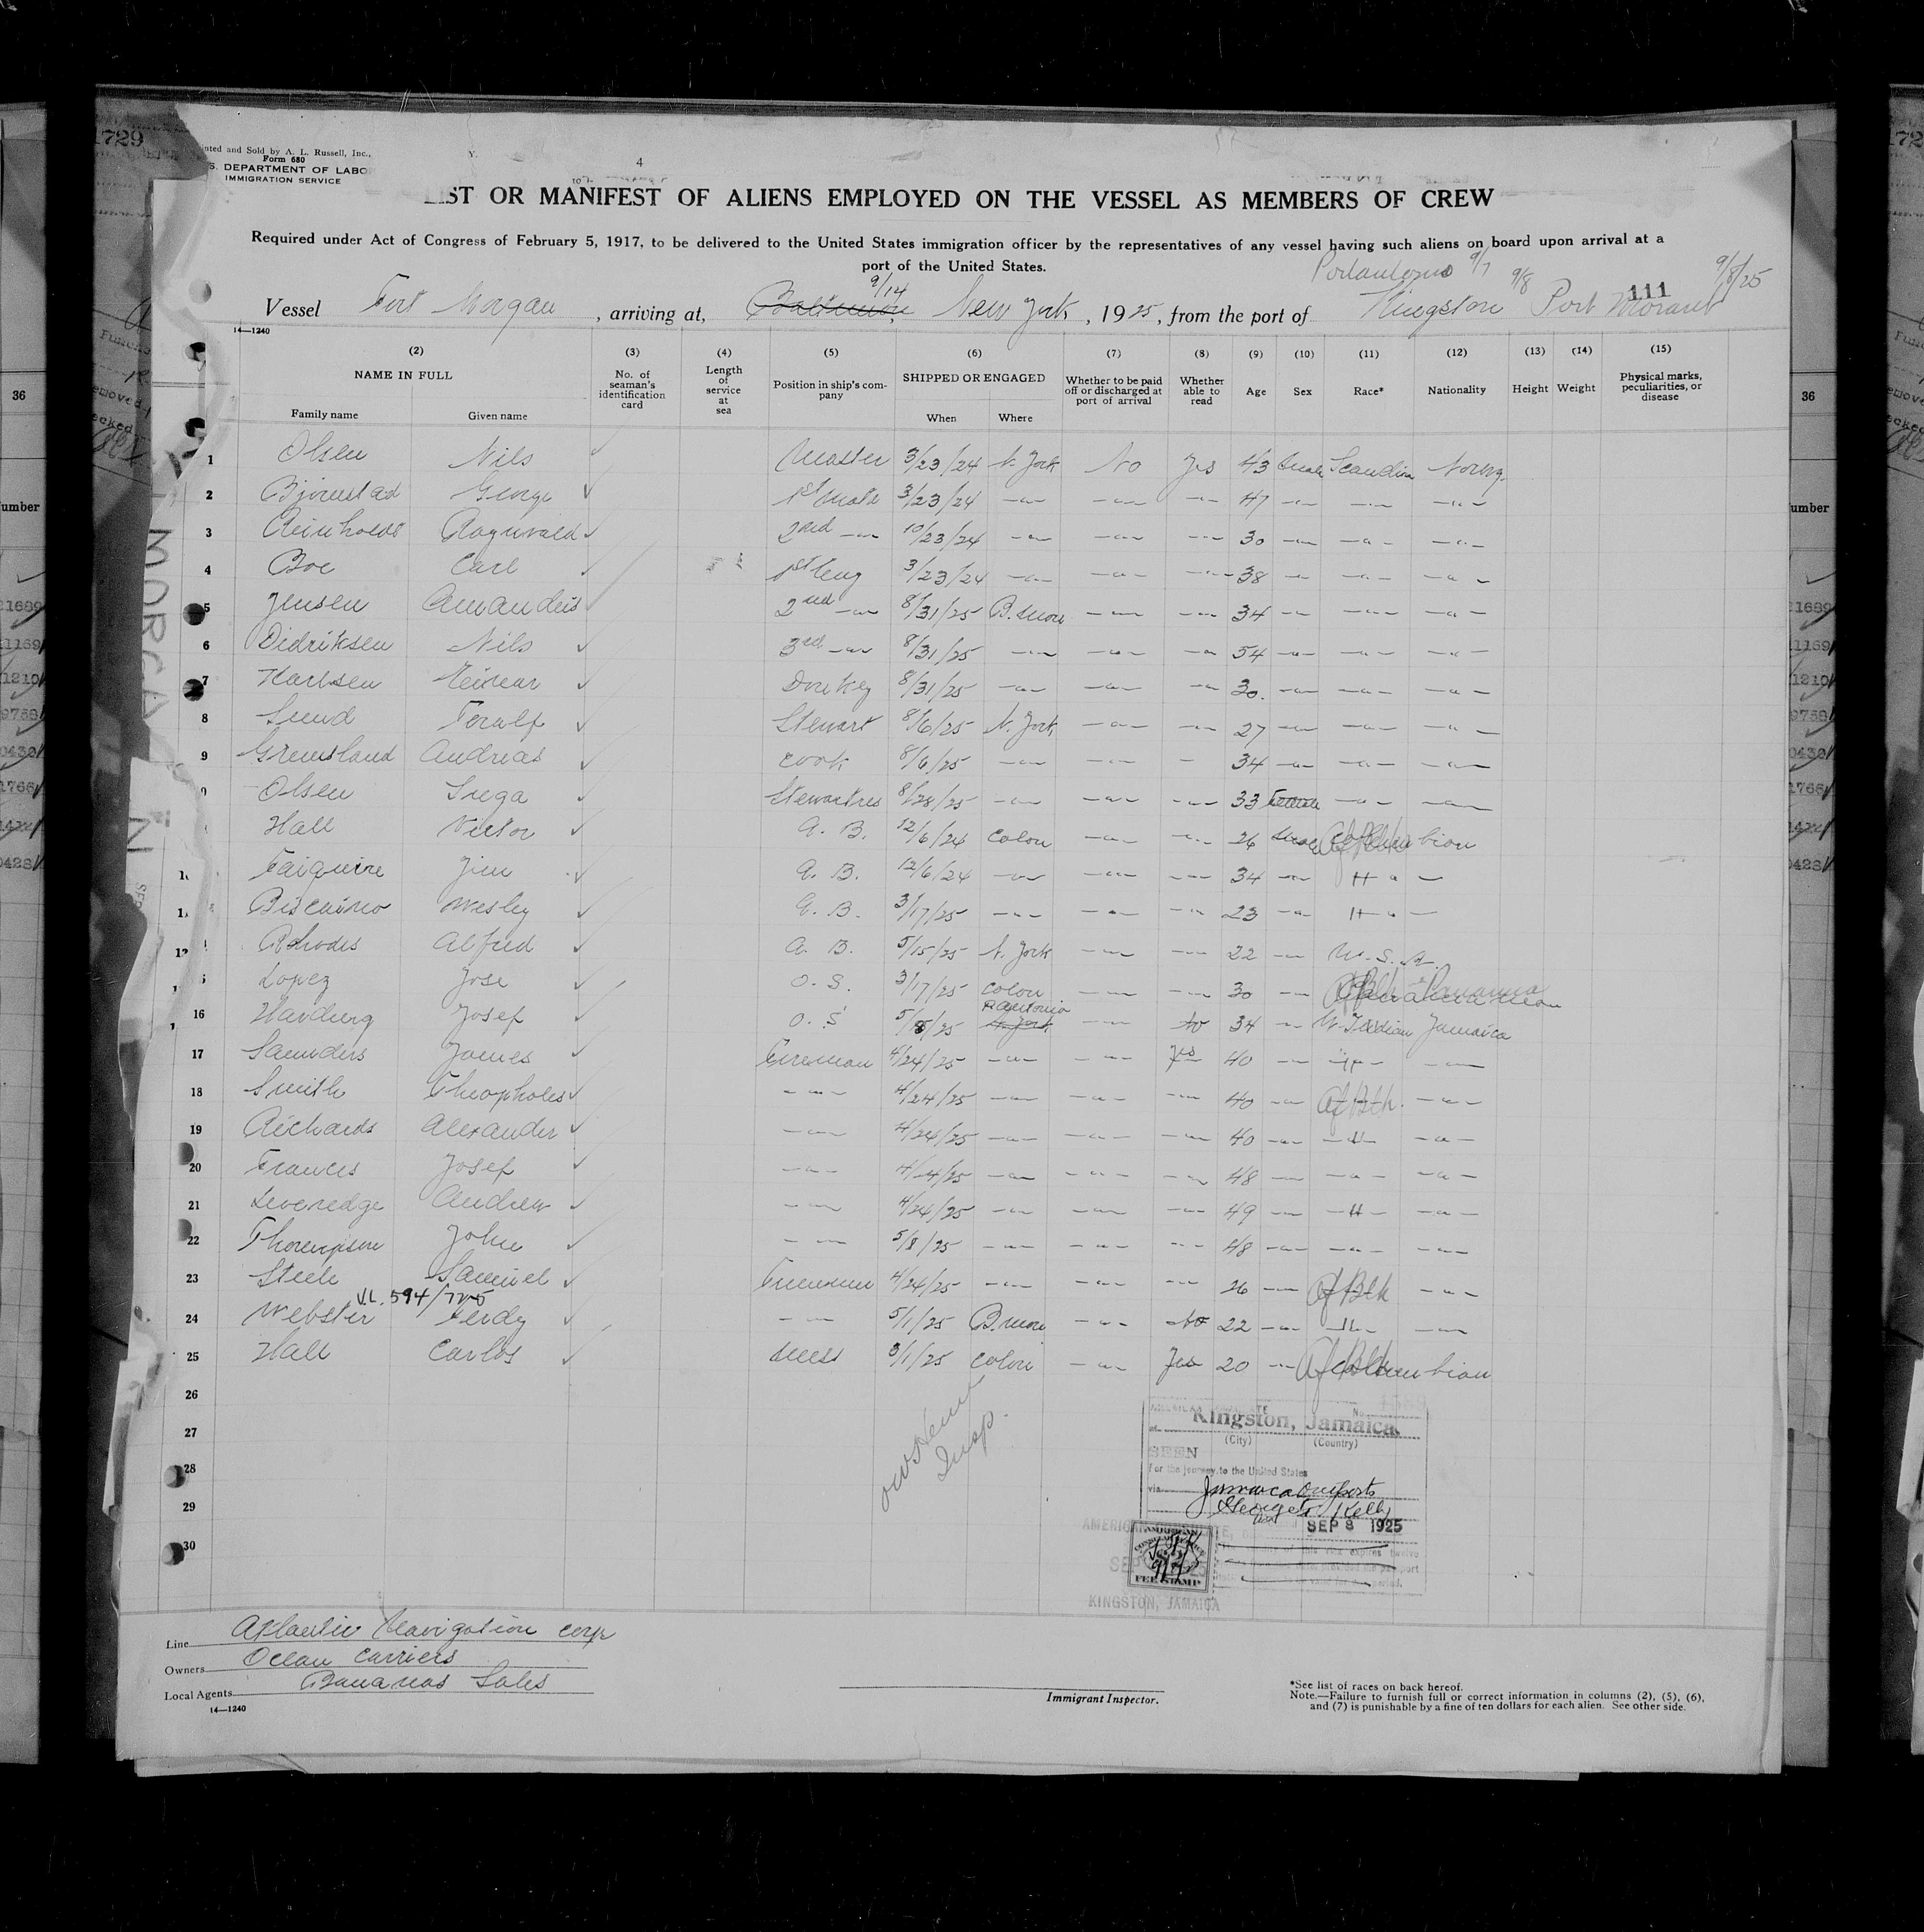 1729
Printed and Sold by A. L. Russell, Inc.,
Form 680
S. DEPARTMENT OF LABO
IMMIGRATION SERVICE
4
IST OR MANIFEST OF ALIENS EMPLOYED ON THE VESSEL AS MEMBERS OF CREW
Required under Act of Congress of February 5, 1917, to be delivered to the United States immigration officer by the representatives of any vessel having such aliens on board upon arrival at a
port of the United States.
9/7 9/8 9/8/25
9/14 111
Vessel Fort Morgan, arriving at, Baltimore New York, 1925, from the port of Kingston Port Morant
14—1240
(2) (3) (4) (5) (6) (7) (8) (9) (10) (11) (12) (13) (14) (15)
NAME IN FULL No. of seaman's identification card Length of service at sea Position in ship's company SHIPPED OR ENGAGED Whether to be paid off or discharged at port of arrival Whether able to read Age Sex Race* Nationality Height Weight Physical marks, peculiarities, or disease
Family name Given name When Where
1 Olsen Nils Master 3/23/24 N. York No Yes 43 male Scandin Norwg.
2 Bjornstad George 1st mate 3/23/24 47
3 Reinholdt Ragnvald 2nd 10/23/24 30
4 Boe Carl 1st eng 3/23/24 38
5 Jensen Amandeus 2nd 8/31/25 B.more 34
6 Didriksen Nils 3rd 8/31/25 54
7 Karlsen Einear Donkey 8/31/25 30.
8 Lund Toralf Stewart 8/6/25 N. York 27
9 Grimsland Andreas cook 8/6/25 34
Olsen Inga Stewartres 8/28/25 33 Female
Hall Victor A. B. 12/6/24 Colon 26 male
Faiquire Jim A. B. 12/6/24 34
Biscaino Wesley A. B. 3/17/25 23
Rhodes Alfred A. B. 5/15/25 N. York 22 U. S. A.
Lopez Jose O. S. 3/17/25 Colon 30
P. antonio
16 Havdurg Josef O. S 5/8/25 N. York No 34 W. Indian Jamaica
17 Saunders James Fireman 4/24/25 Yes 40
18 Smith Theopholes 4/24/25 40 Af Blk.
19 Richards Alexander 4/24/25 40
20 Frances Josef 4/24/25 48
21 Leveredge Andrew 4/24/25 49
22 Thompson John 5/8/25 48
23 Steele Samuel Fireman 4/24/25 26 Af Blk
V.L. 594/725
24 Webster Ferdy 5/1/25 B.more No 22
25 Hall Carlos Mess 5/1/25 Colon Yes 20
26
27
28
29
30
Insp.
AMERICAN CONSULATE No.
at Kingston, Jamaica.
(City) (Country)
SEEN
For the journey to the United States
via Jamaica Outports
George Kelly
SEP 8 1925
FEE STAMP
KINGSTON, JAMAICA
Line Atlantic Navigation corp
Owners Ocean Carriers
Local Agents Bananas Sales
14—1240
Immigrant Inspector.
*See list of races on back hereof.
Note.—Failure to furnish full or correct information in columns (2), (5), (6),
and (7) is punishable by a fine of ten dollars for each alien. See other side.
MORGAN
36
umber